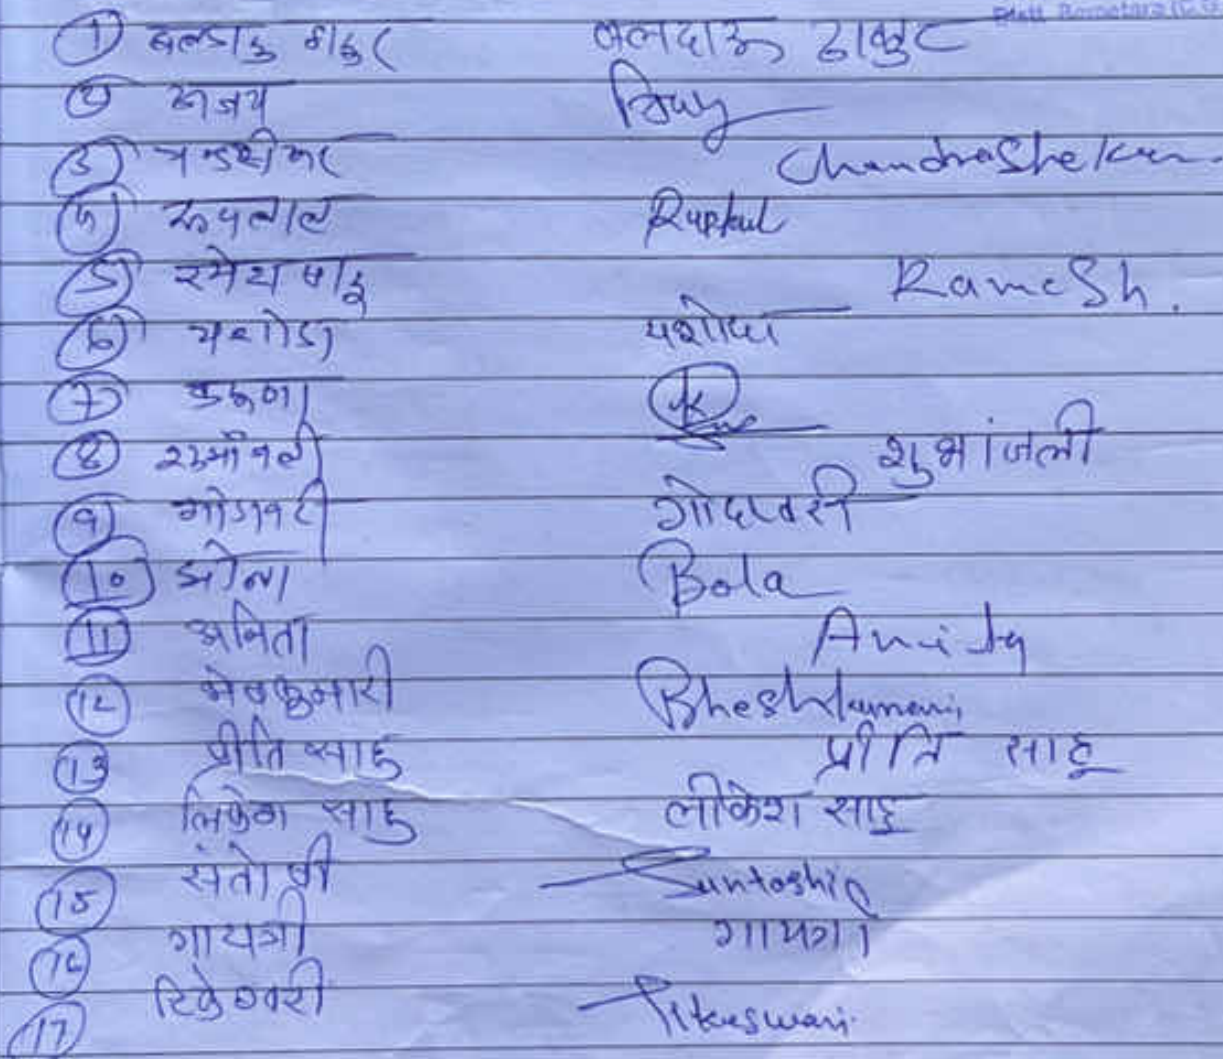 Distt. Bemetara (C.G.)
1 बलदाऊ ठाकुर बलदाऊ ठाकुर
2
3 Chandrashekar
4 रूपलाल Ruplal
5 रमेश साहू Ramesh.
6 यशोदा यशोदा
7
8 शुभांजली
9 गोदावरी गोदावरी
10 Bola
11 अनिता Anita
12 भेषकुमारी Bheshkumari
13 प्रीति साहू प्रीति साहू
14 लिकेश साहु लीकेश साहू
15 संतोषी Santoshi
16 गायत्री गायत्री
17 टिकेश्वरी Tikeswari.